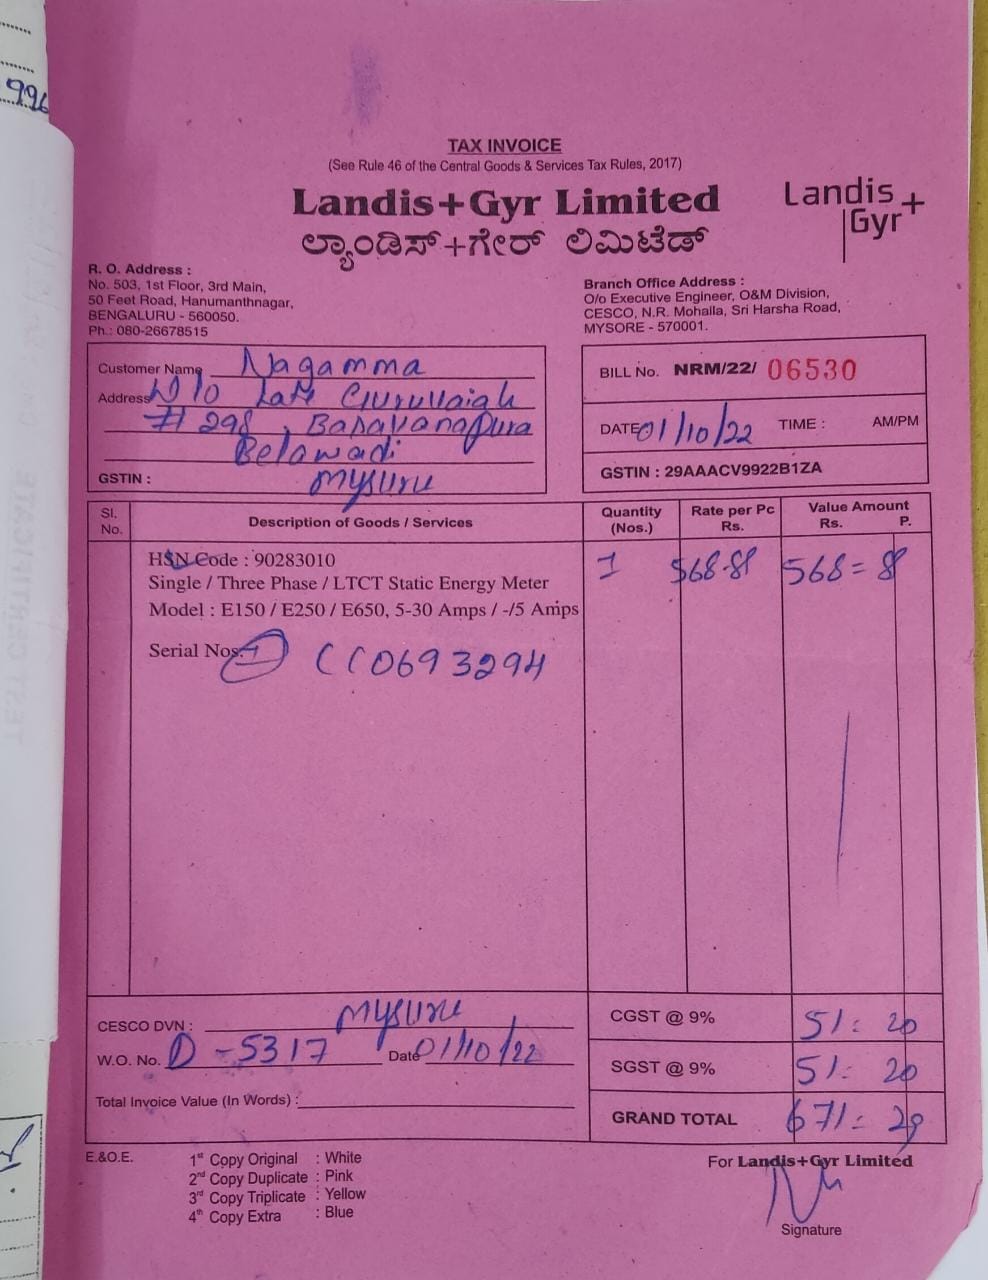 996
TAX INVOICE
(See Rule 46 of the Central Goods & Services Tax Rules, 2017)
Landis+Gyr Limited
ಲ್ಯಾಂಡಿಸ್+ಗೇರ್ ಲಿಮಿಟೆಡ್
Landis+
Gyr
R. O. Address :
No. 503, 1st Floor, 3rd Main,
50 Feet Road, Hanumanthnagar,
BENGALURU - 560050.
Ph.: 080-26678515
Branch Office Address :
O/o Executive Engineer, O&M Division,
CESCO, N.R. Mohalla, Sri Harsha Road,
MYSORE - 570001.
Customer Name Nagamma
Address W/o Late Guruvaiah
# 298, Basavanapura
Belawadi
GSTIN : Mysuru
BILL No. NRM/22/ 06530
DATE 01/10/22 TIME : AM/PM
GSTIN : 29AAACV9922B1ZA
Sl. No. Description of Goods / Services Quantity (Nos.) Rate per Pc Rs. Value Amount Rs. P.
HSN Code : 90283010 1 568-88 568=8
Single / Three Phase / LTCT Static Energy Meter
Model : E150 / E250 / E650, 5-30 Amps / -/5 Amps
Serial Nos. 1 CC0693294
CESCO DVN : Mysuru
W.O. No. D-5317 Date 01/10/22
Total Invoice Value (In Words) :
CGST @ 9% 51: 20
SGST @ 9% 51: 20
GRAND TOTAL 671: 29
E.&O.E.
1st Copy Original : White
2nd Copy Duplicate : Pink
3rd Copy Triplicate : Yellow
4th Copy Extra : Blue
For Landis+Gyr Limited
Signature
TEST CERTIFICATE